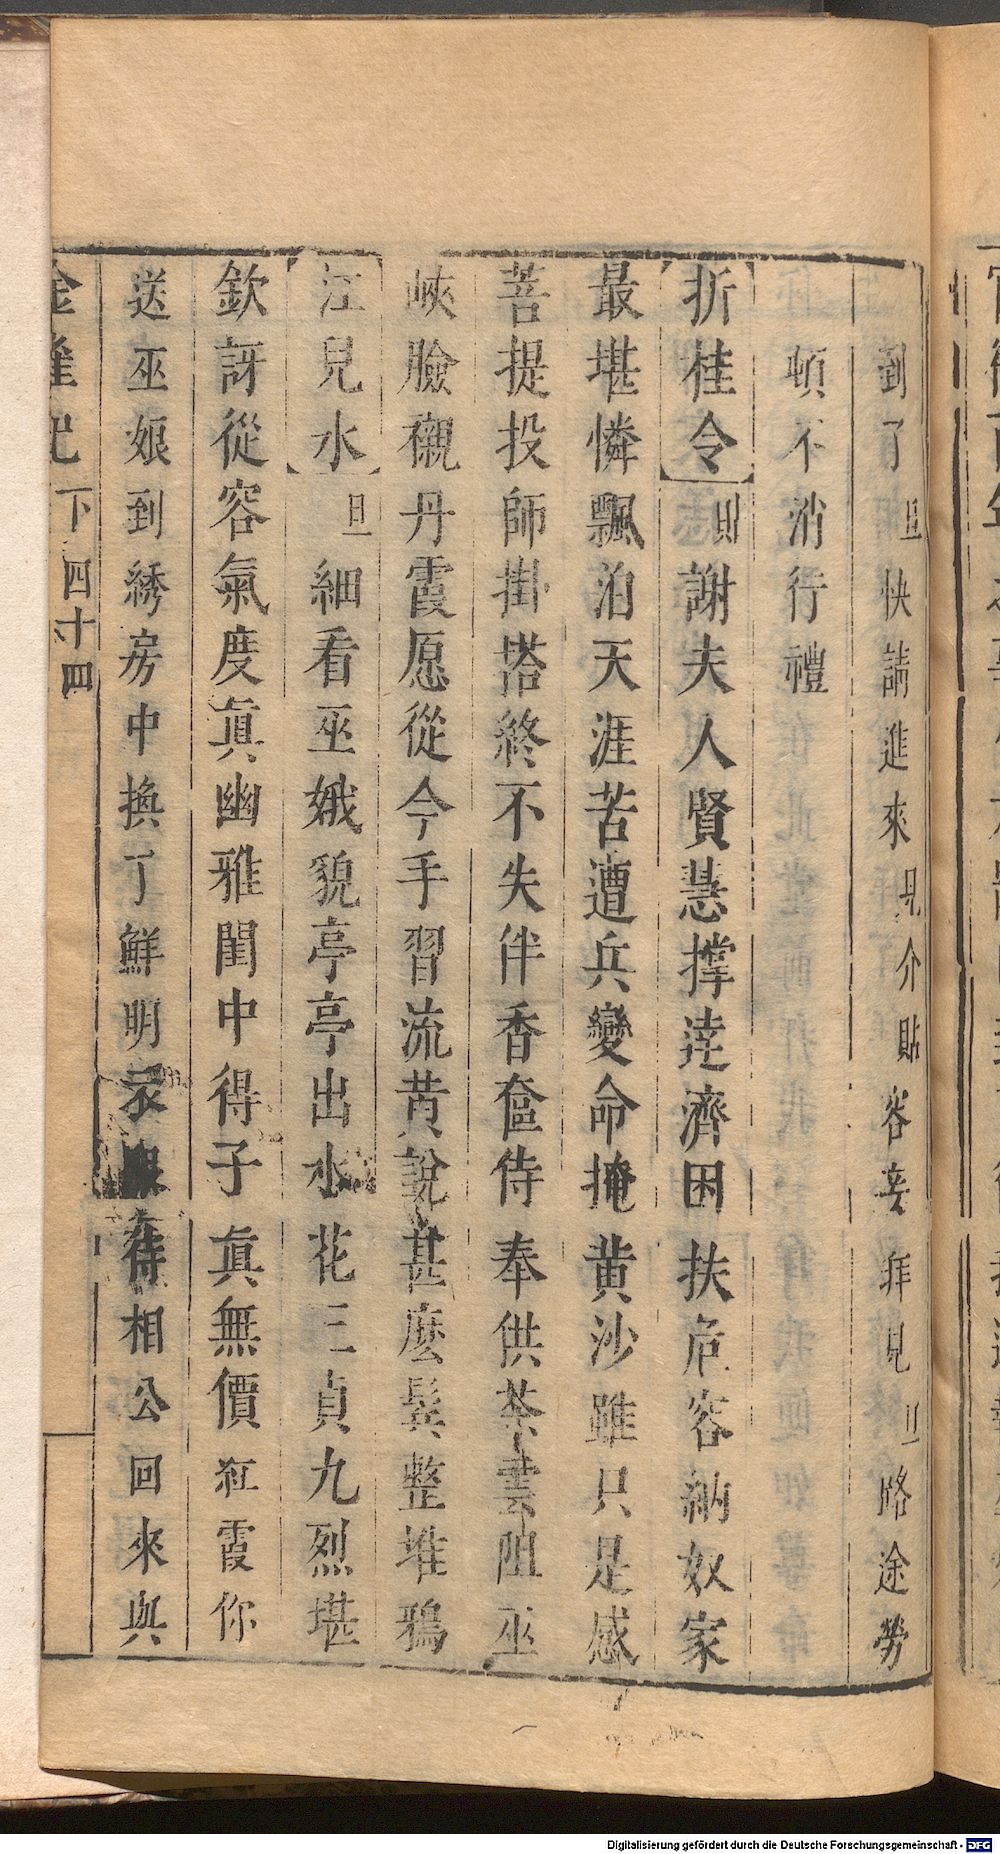 到了旦快請進來見介貼容妾拜見旦路途勞
頓不消行禮
折桂令貼謝夫人賢慧撐達濟困扶危容納奴家
最堪憐飄泊天涯苦遭兵變命掩黃沙雖只是感
菩提投師掛塔終不失伴香奩侍奉供茶雲阻巫
峽臉襯丹霞愿從今手習流黃說甚麽鬂整堆鴉
江兒水旦細看巫娥貌亭亭出水花三貞九烈堪
欽訝從容氣度真幽雅閨中得子真無價紅霞你
送巫娘到綉房中換了鮮明衣服待相公回來與
金雀記 下 四十四
Digitalisierung gefördert durch die Deutsche Forschungsgemeinschaft - DFG